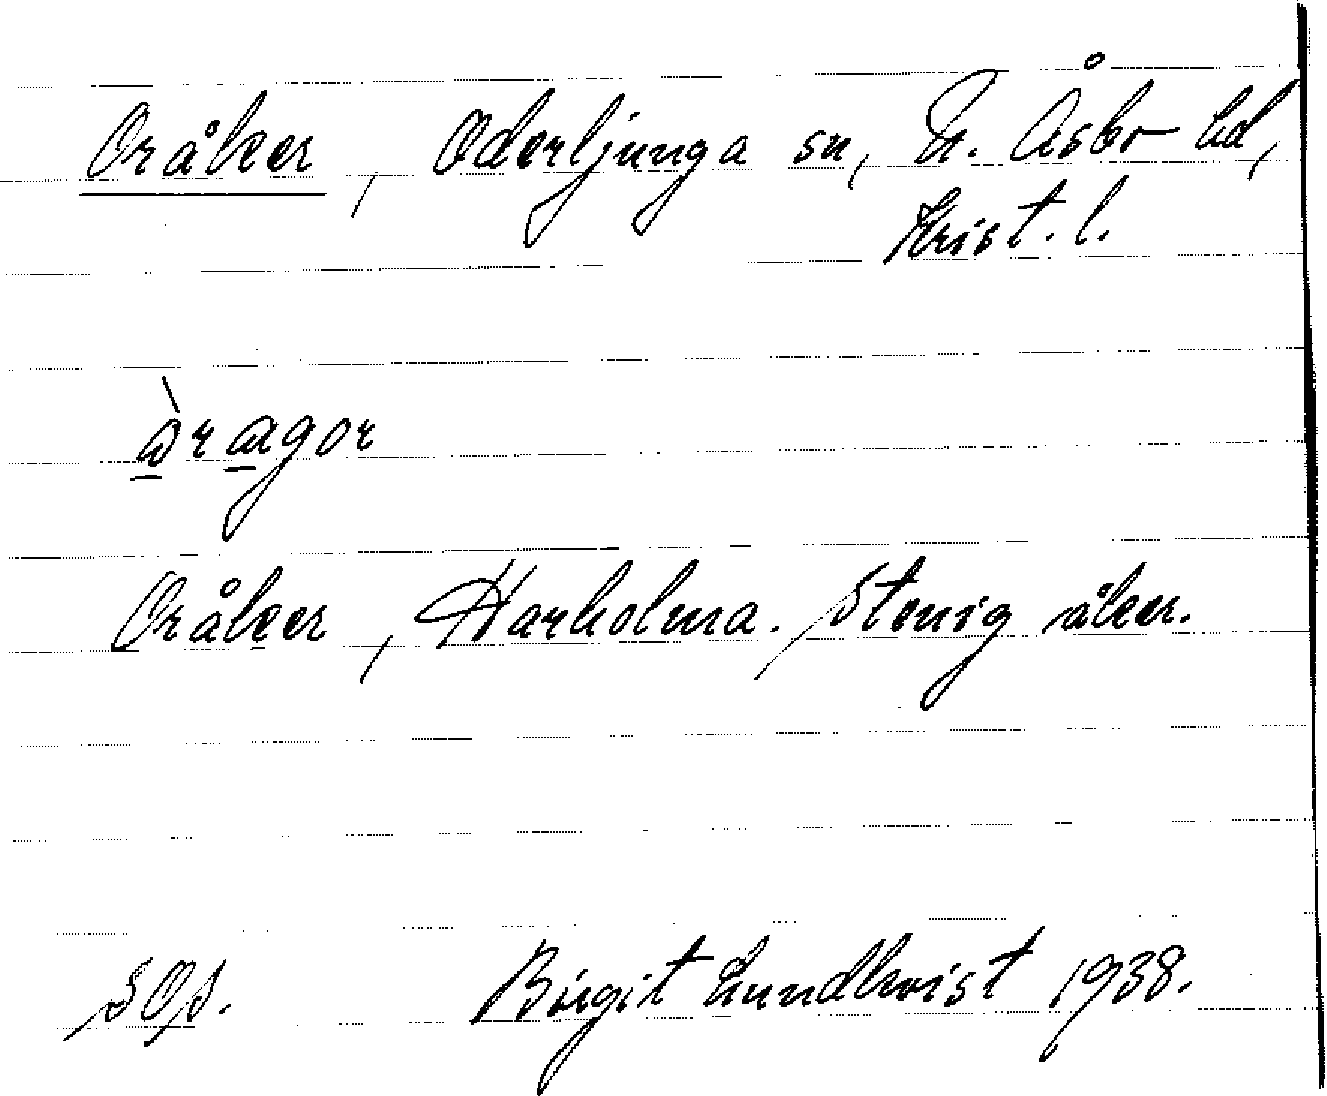 Oråker, Oderljunga sn, N. Åsbo hd,
Krist. l.
Oråker, Harholma. Stenig åker.
Birgit Lundkvist 1938.